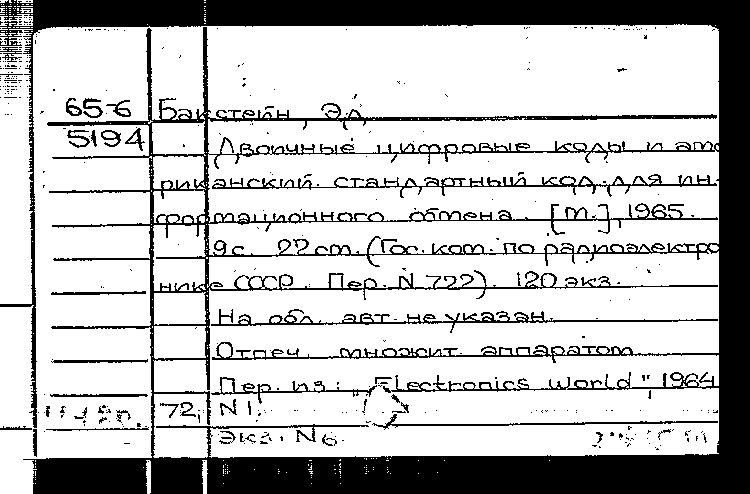 65-6 Бакстейн, Эд.
5194
Двоичные цифровые коды и аме
риканский стандартный код для ин-
формационного обмена. [М.], 1965.
9 с. 22 cm. (Гос. ком. по радиоэлектро
нике СССР. Пер. N 722). 120 экз.
На обл. авт. не указан.
Отпеч. множит. аппаратом
Пер. из: „Electronics World", 1964
72, N1.
Экз. N6